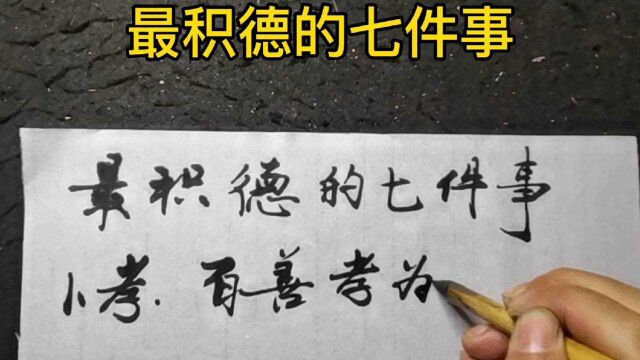 最积德的七件事
最积德的七件事
1、孝.百善孝为